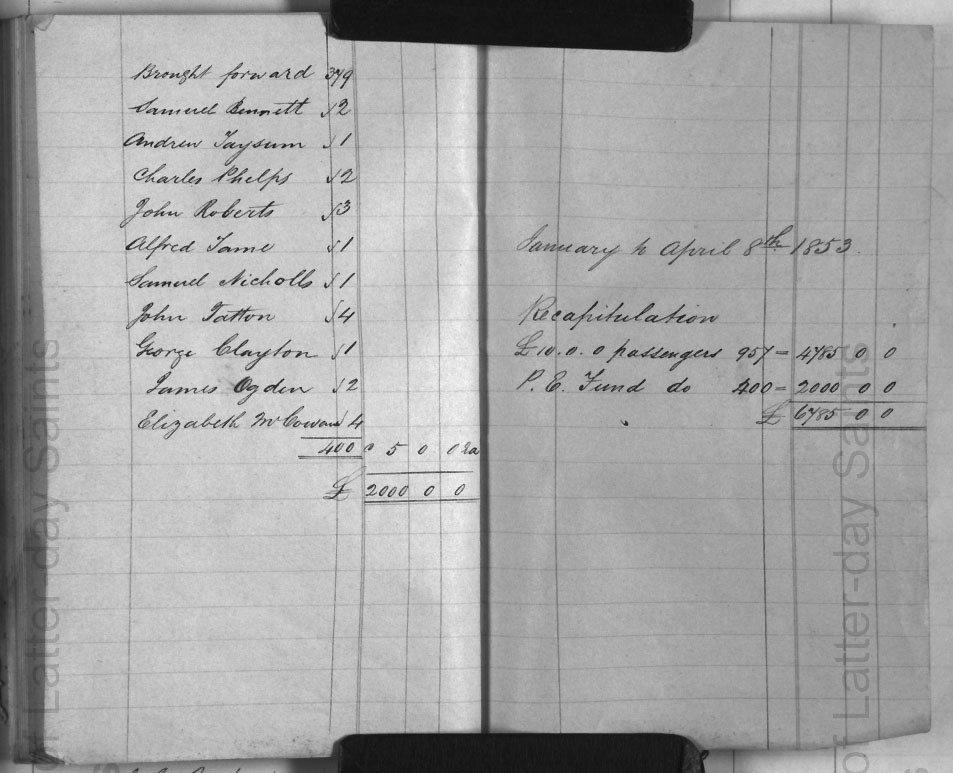 Brought forward 379
Samuel Bennett √2
Andrew Taysum √1
Charles Phelps √2
John Roberts √3
Alfred Tame √1
Samuel Nicholls √1
John Tatton √4
George Clayton √1
James Ogden √2
Elizabeth McCowan √4
400 @ 5 0 0 ea
£ 2000 0 0
January to April 8th 1853.
Recapitulation
£10.0.0 passengers 957 = 4785 0 0
P. E. Fund do 400 = 2000 0 0
£ 6785 0 0
of Latter-day Saints
of Latter-day Saints